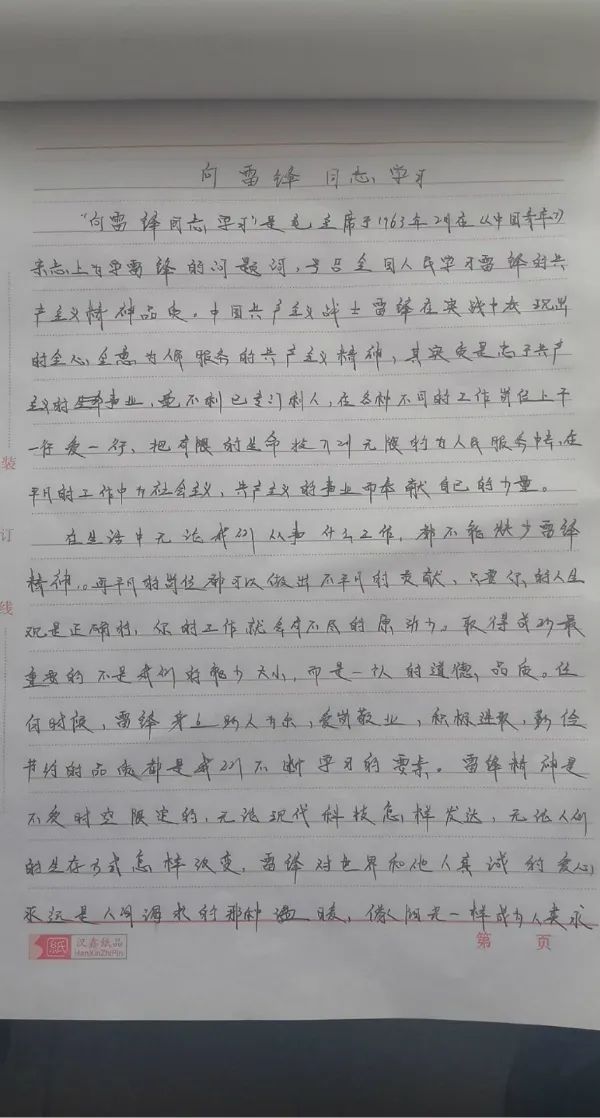 向雷锋同志学习
“向雷锋同志学习”是毛主席于1963年2月在《中国青年》
杂志上为学雷锋的问题词，号召全国人民学习雷锋的共
产主义精神品质。中国共产主义战士雷锋在实践中表现出
的全心全意为人民服务的共产主义精神，其实质是忠于共产
主义的事业，毫不利己专门利人，在各种不同的工作岗位上干
一行爱一行，把有限的生命投入到无限的为人民服务中去，在
平凡的工作中为社会主义、共产主义的事业而奉献自己的力量。
在生活中无论我们从事什么工作，都不能缺少雷锋
精神。再平凡的岗位都可以做出不平凡的贡献，只要你的人生
观是正确的，你的工作就会有不尽的原动力。取得成功最
重要的不是我们的能力大小，而是一个人的道德、品质。任
何时候，雷锋身上助人为乐，爱岗敬业，积极进取，勤俭
节约的品质都是我们不断学习的要素。雷锋精神是
不受时空限定的，无论现代科技怎样发达，无论人们
的生存方式怎样改变，雷锋对世界和他人真诚的爱心，
永远是人间渴求的那种温暖，像阳光一样成为人类永
装
订
线
紙
汉鑫纸品
HanXinZhiPin
第 页